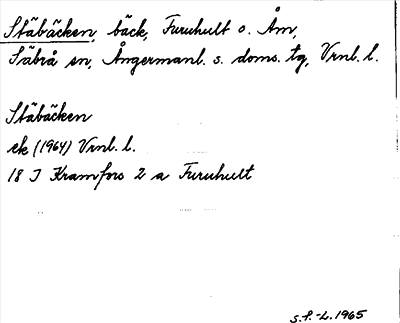 Stäbäcken, bäck, Furuhult o. Åm,
Säbrå sn, Ångermanl. s. doms. tg, Vrnl. l.
Stäbäcken
ek (1964) Vrnl. l.
18 I Kramfors 2 a Furuhult
S.F.-L. 1965